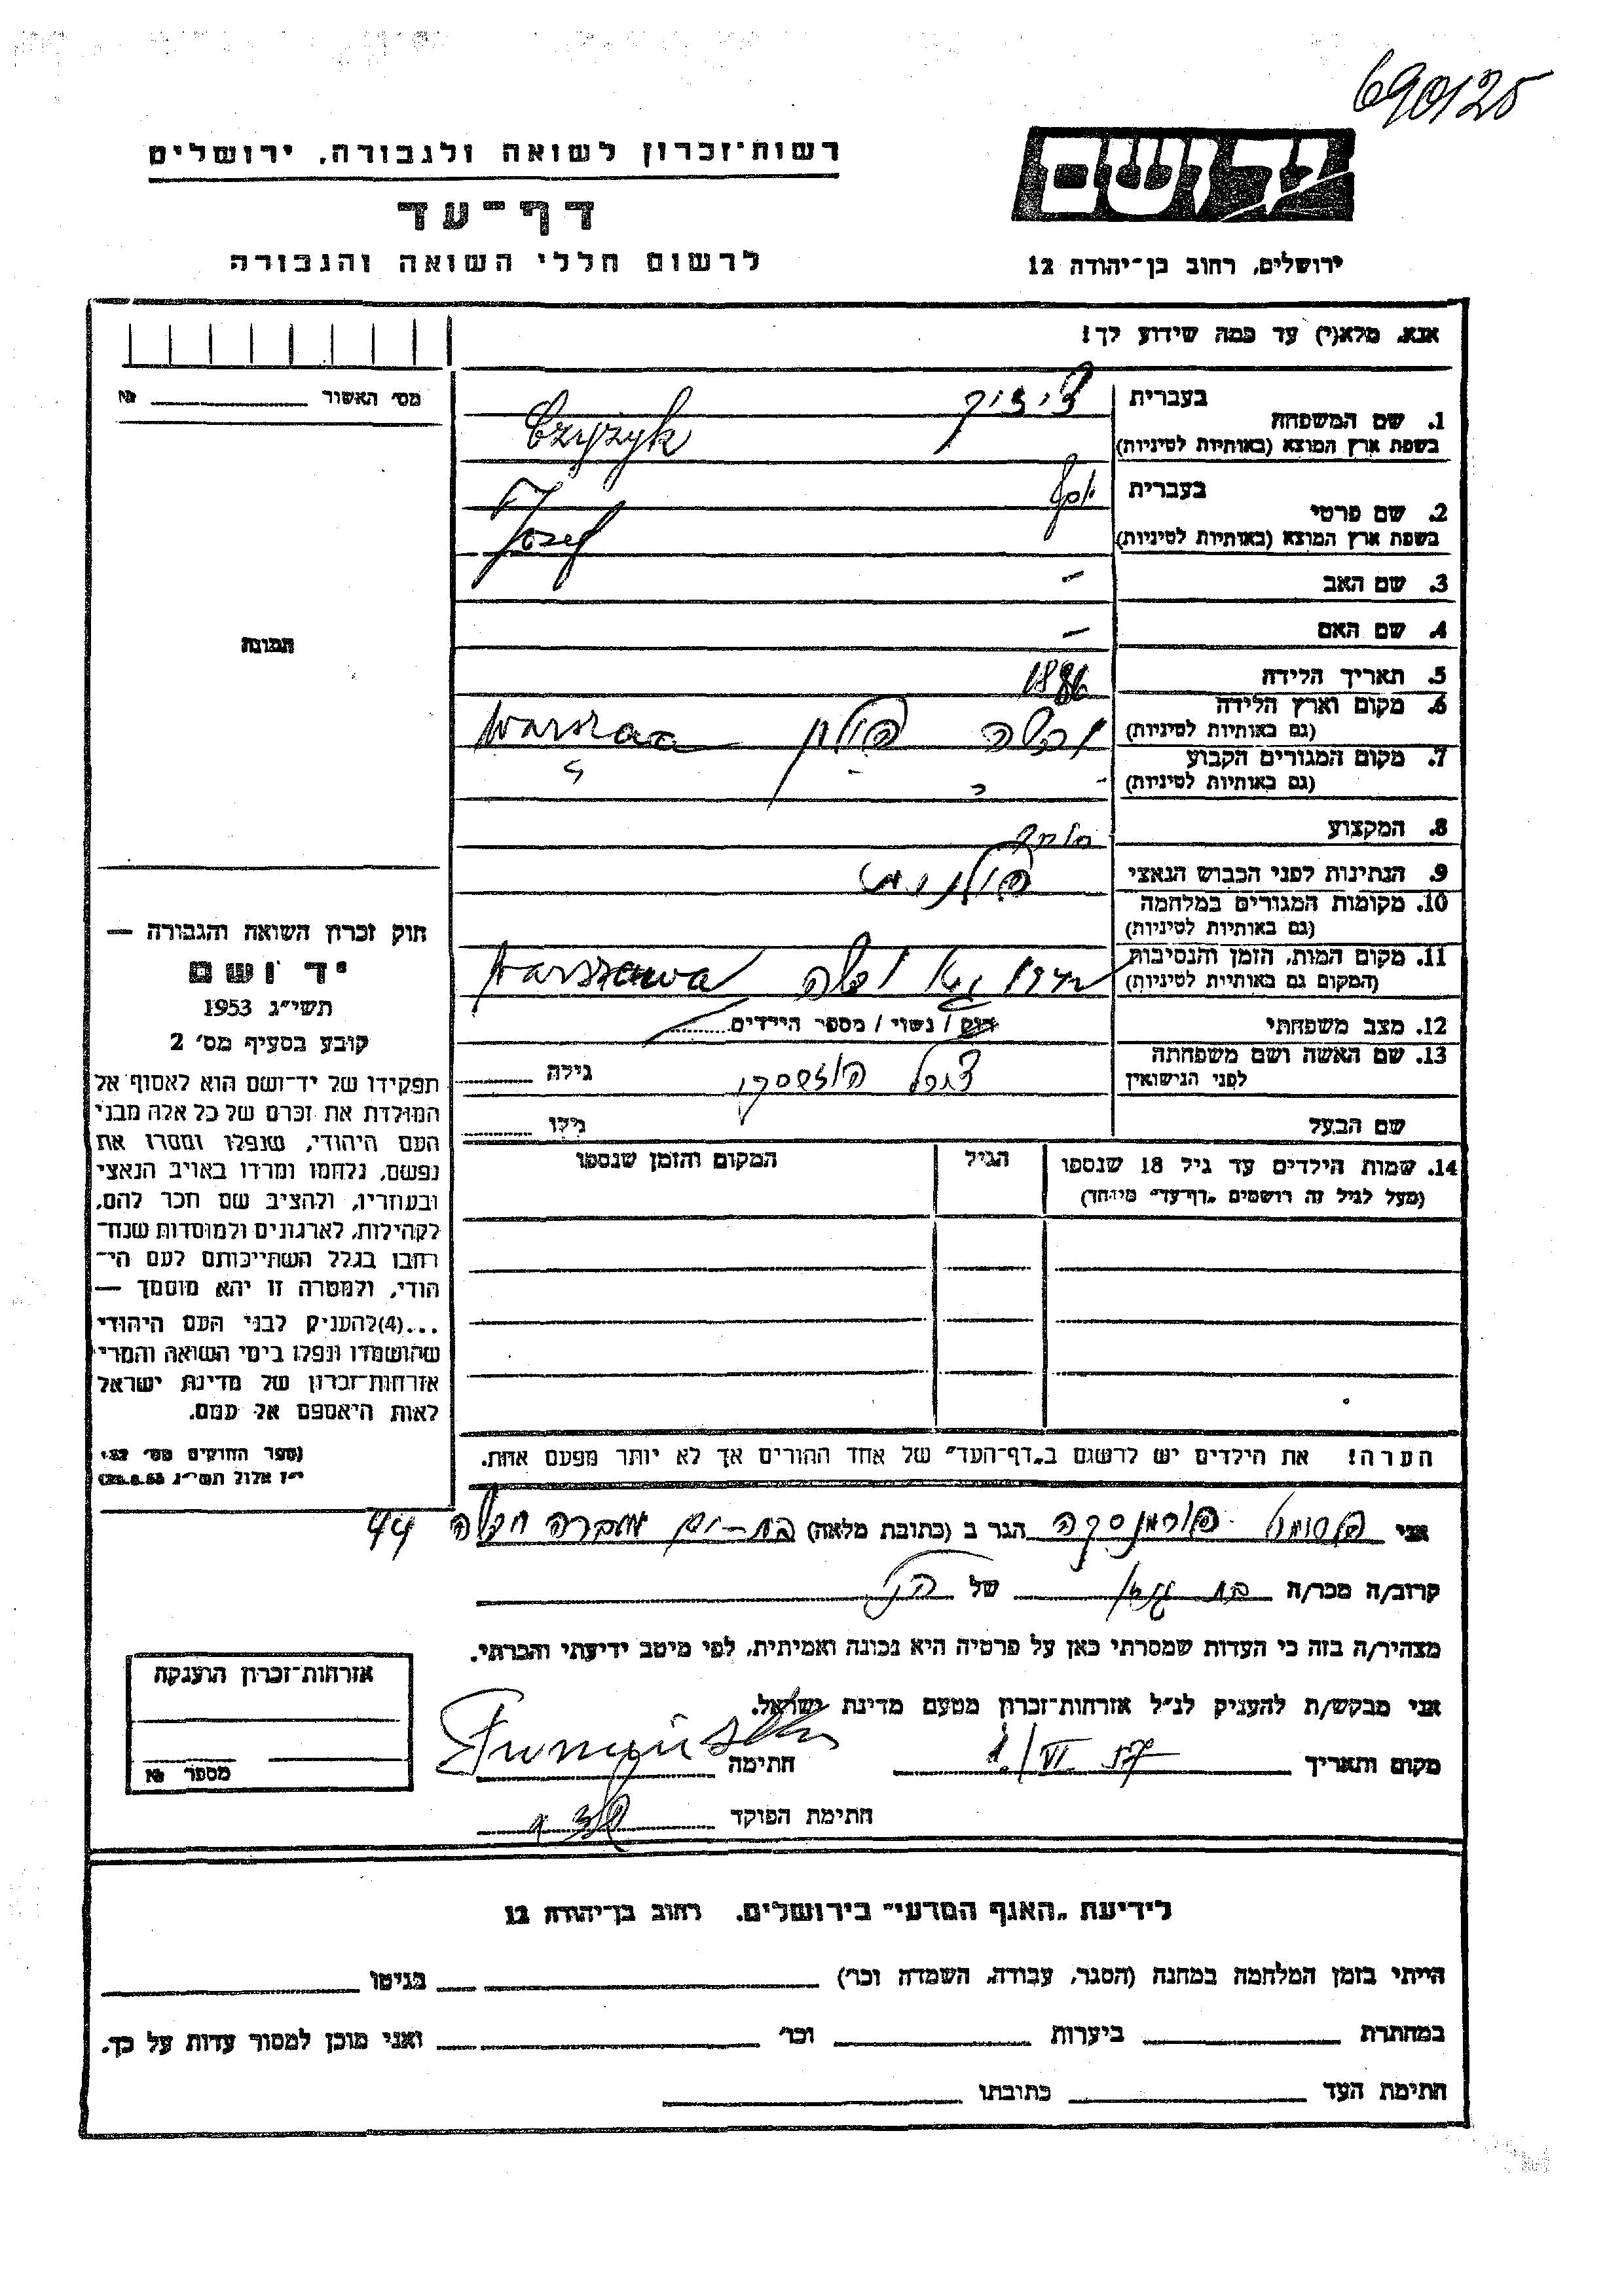 690125
יד ושם
רשות־זכרון לשואה ולגבורה, ירושלים
דף־עד
לרשום חללי השואה והגבורה
ירושלים, רחוב בן־יהודה 12
אנא, מלא(י) עד כמה שידוע לך!
מס׳ האשור № 
1. שם המשפחה
בעברית
בשפת ארץ המוצא (באותיות לטיניות)
Czyżyk
2. שם פרטי
בעברית יוסף
בשפת ארץ המוצא (באותיות לטיניות)
Jozef
3. שם האב –
4. שם האם –
5. תאריך הלידה 1886
6. מקום וארץ הלידה
(גם באותיות לטיניות) ורשה פולין
7. מקום המגורים הקבוע
(גם באותיות לטיניות)
8. המקצוע
9. הנתינות לפני הכבוש הנאצי פולנית
10. מקומות המגורים במלחמה
(גם באותיות לטיניות)
11. מקום המות, הזמן והנסיבות
(המקום גם באותיית לטיניות) גיטו ורשה Warszawa
12. מצב משפחתי רווק / נשוי / מספר הילדים
13. שם האשה ושם משפחתה
לפני הנישואין
גילה
שם הבעל גילו
14. שמות הילדים עד גיל 18 שנספו
(מעל לגיל זה רושמים „דף־עד״ מיוחד)
הגיל
המקום והזמן שנספו
הערה! את הילדים יש לרשום ב„דף־העד״ של אחד ההורים אך לא יותר מפעם אחת.
תמונה
חוק זכרון השואה והגבורה —
יד ושם
תשי״ג 1953
קובע בסעיף מס׳ 2
תפקידו של יד־ושם הוא לאסוף אל
המולדת את זכרם של כל אלה מבני
העם היהודי, שנפלו ומסרו את
נפשם, נלחמו ומרדו באויב הנאצי
ובעוזריו, ולהציב שם וזכר להם,
לקהילות, לארגונים ולמוסדות שנח־
רחבו בגלל השתייכותם לעם הי־
הודי, ולמטרה זו יהא מוסמך —
...(4)להעניק לבני העם היהודי
שהושמדו ונפלו בימי השואה והמרי
אזרחות־זכרון של מדינת ישראל
לאות היאספם אל עמם.
(ספר החוקים מס׳ 132,
י״ז אלול תשי״ג 28.8.53)
אני הגר ב (כתובת מלאה) בת-ים 44
קרוב/ה מכר/ה של
מצהיר/ה בזה כי העדות שמסרתי כאן על פרטיה היא נכונה ואמיתית, לפי מיטב ידיעתי והכרתי.
אני מבקש/ת להעניק לנ״ל אזרחות־זכרון מטעם מדינת ישראל.
מקום ותאריך 1./VI. 57 חתימה
חתימת הפוקד
אזרחות־זכרון הוענקה
מספר №
לידיעת „האגף המדעי״ בירושלים, רחוב בן־יהודה 12
הייתי בזמן המלחמה במחנה (הסגר, עבודה, השמדה וכו׳) בגיטו
במחתרת ביערות וכו׳ ואני מוכן למסור עדות על כך.
חתימת העד כתובתו